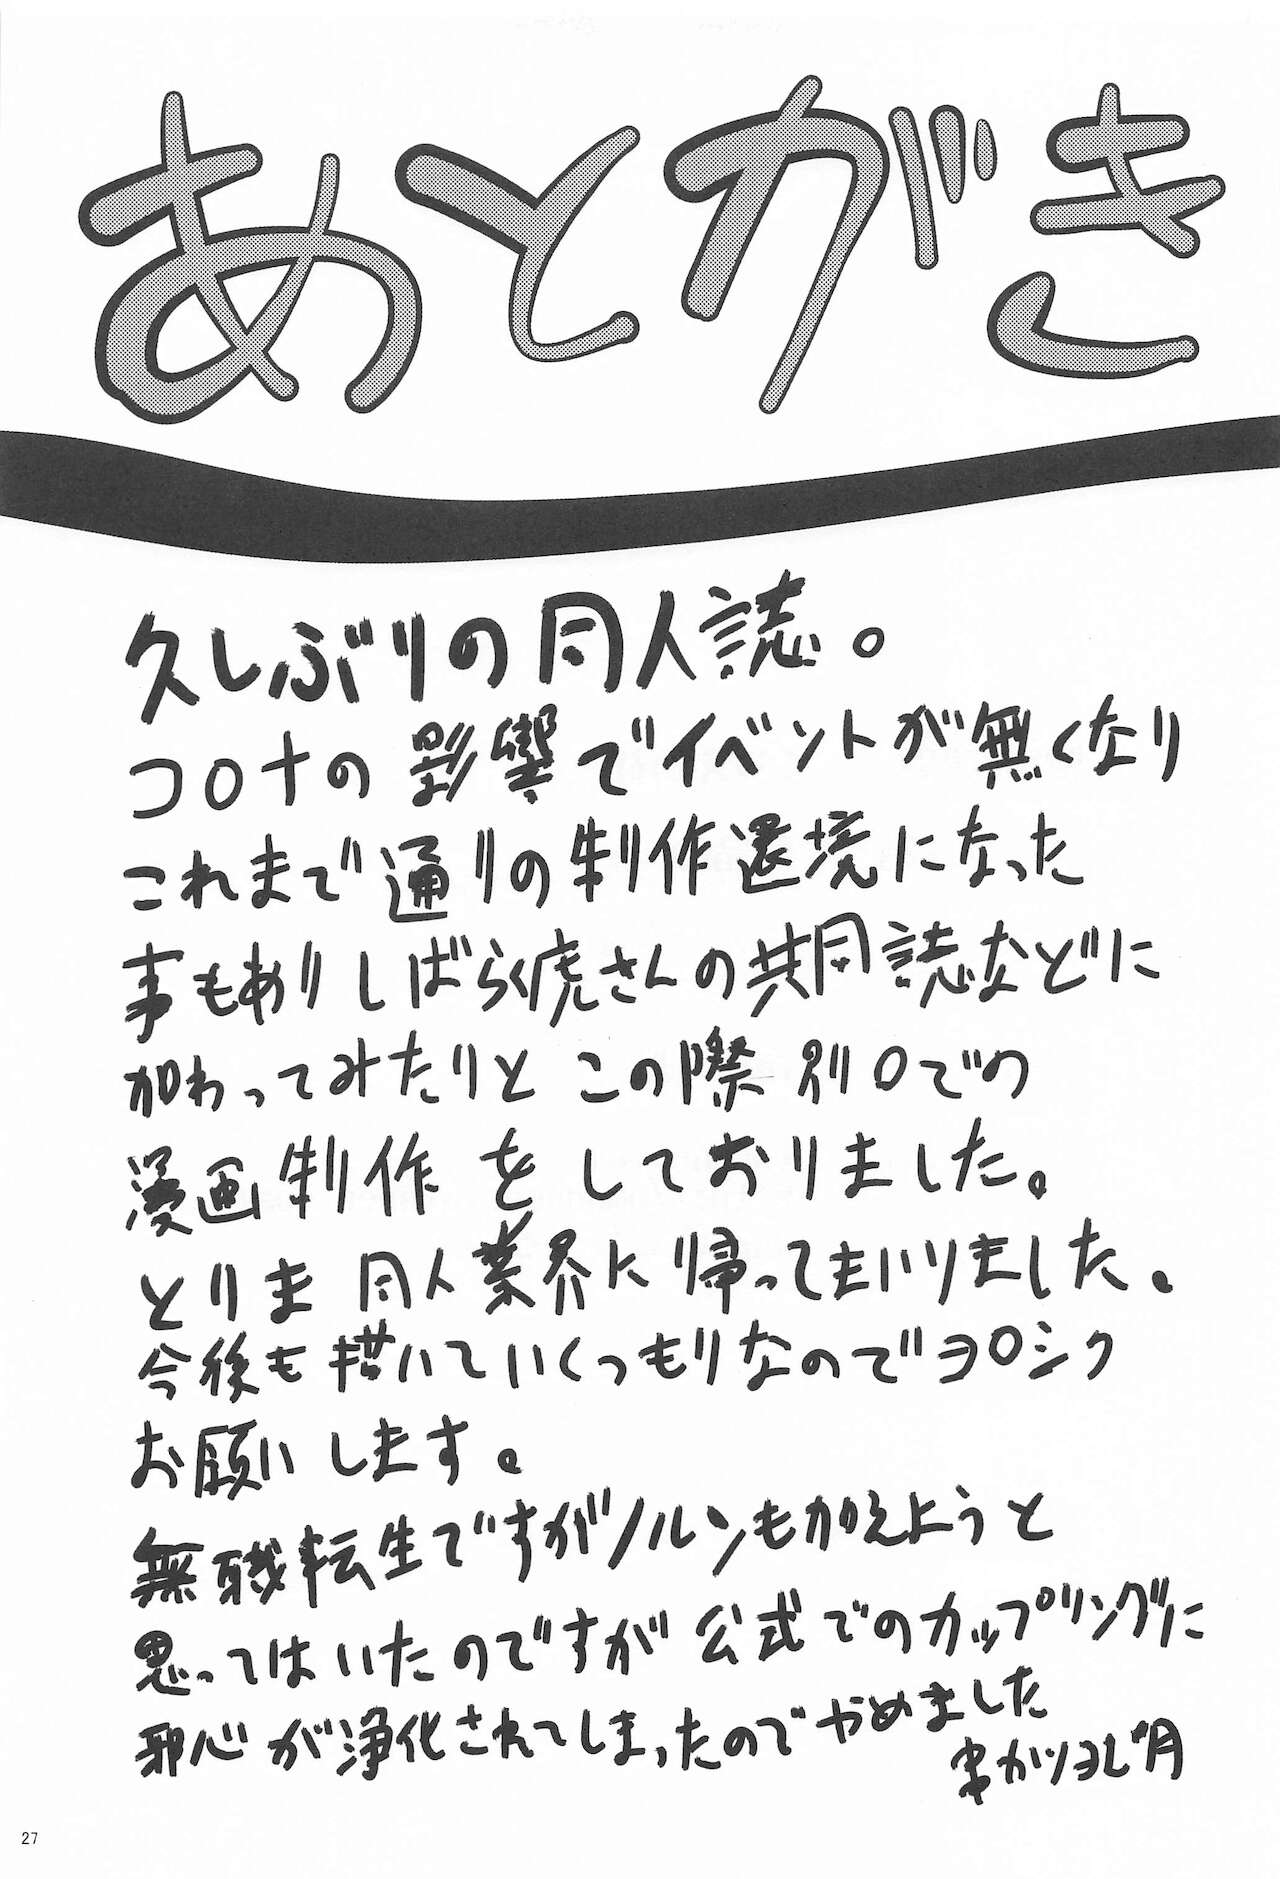 あとがき
久しぶりの同人誌。
コロナの影響でイベントが無くなり
これまで通りの制作環境になった
事もありしばらく虎さんの共同誌などに
加わってみたりと この際 別口での
漫画制作 をしておりました。
とりま 同人業界に帰ってまいりました。
今後も描いていくつもりなのでヨロシク
お願いします。
無職転生ですがノルンもかえようと
思ってはいたのですが 公式でのカップリングに
邪心が浄化されてしまったのでやめました
27